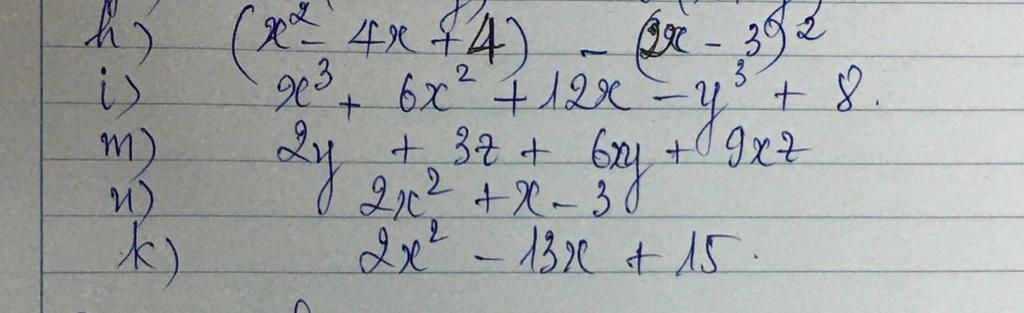 h) (x² - 4x + 4) - (2x - 3)²
i) x³ + 6x² + 12x - y³ + 8.
m) 2y + 3z + 6xy + 9xz
n) 2x² + x - 3
k) 2x² - 13x + 15.